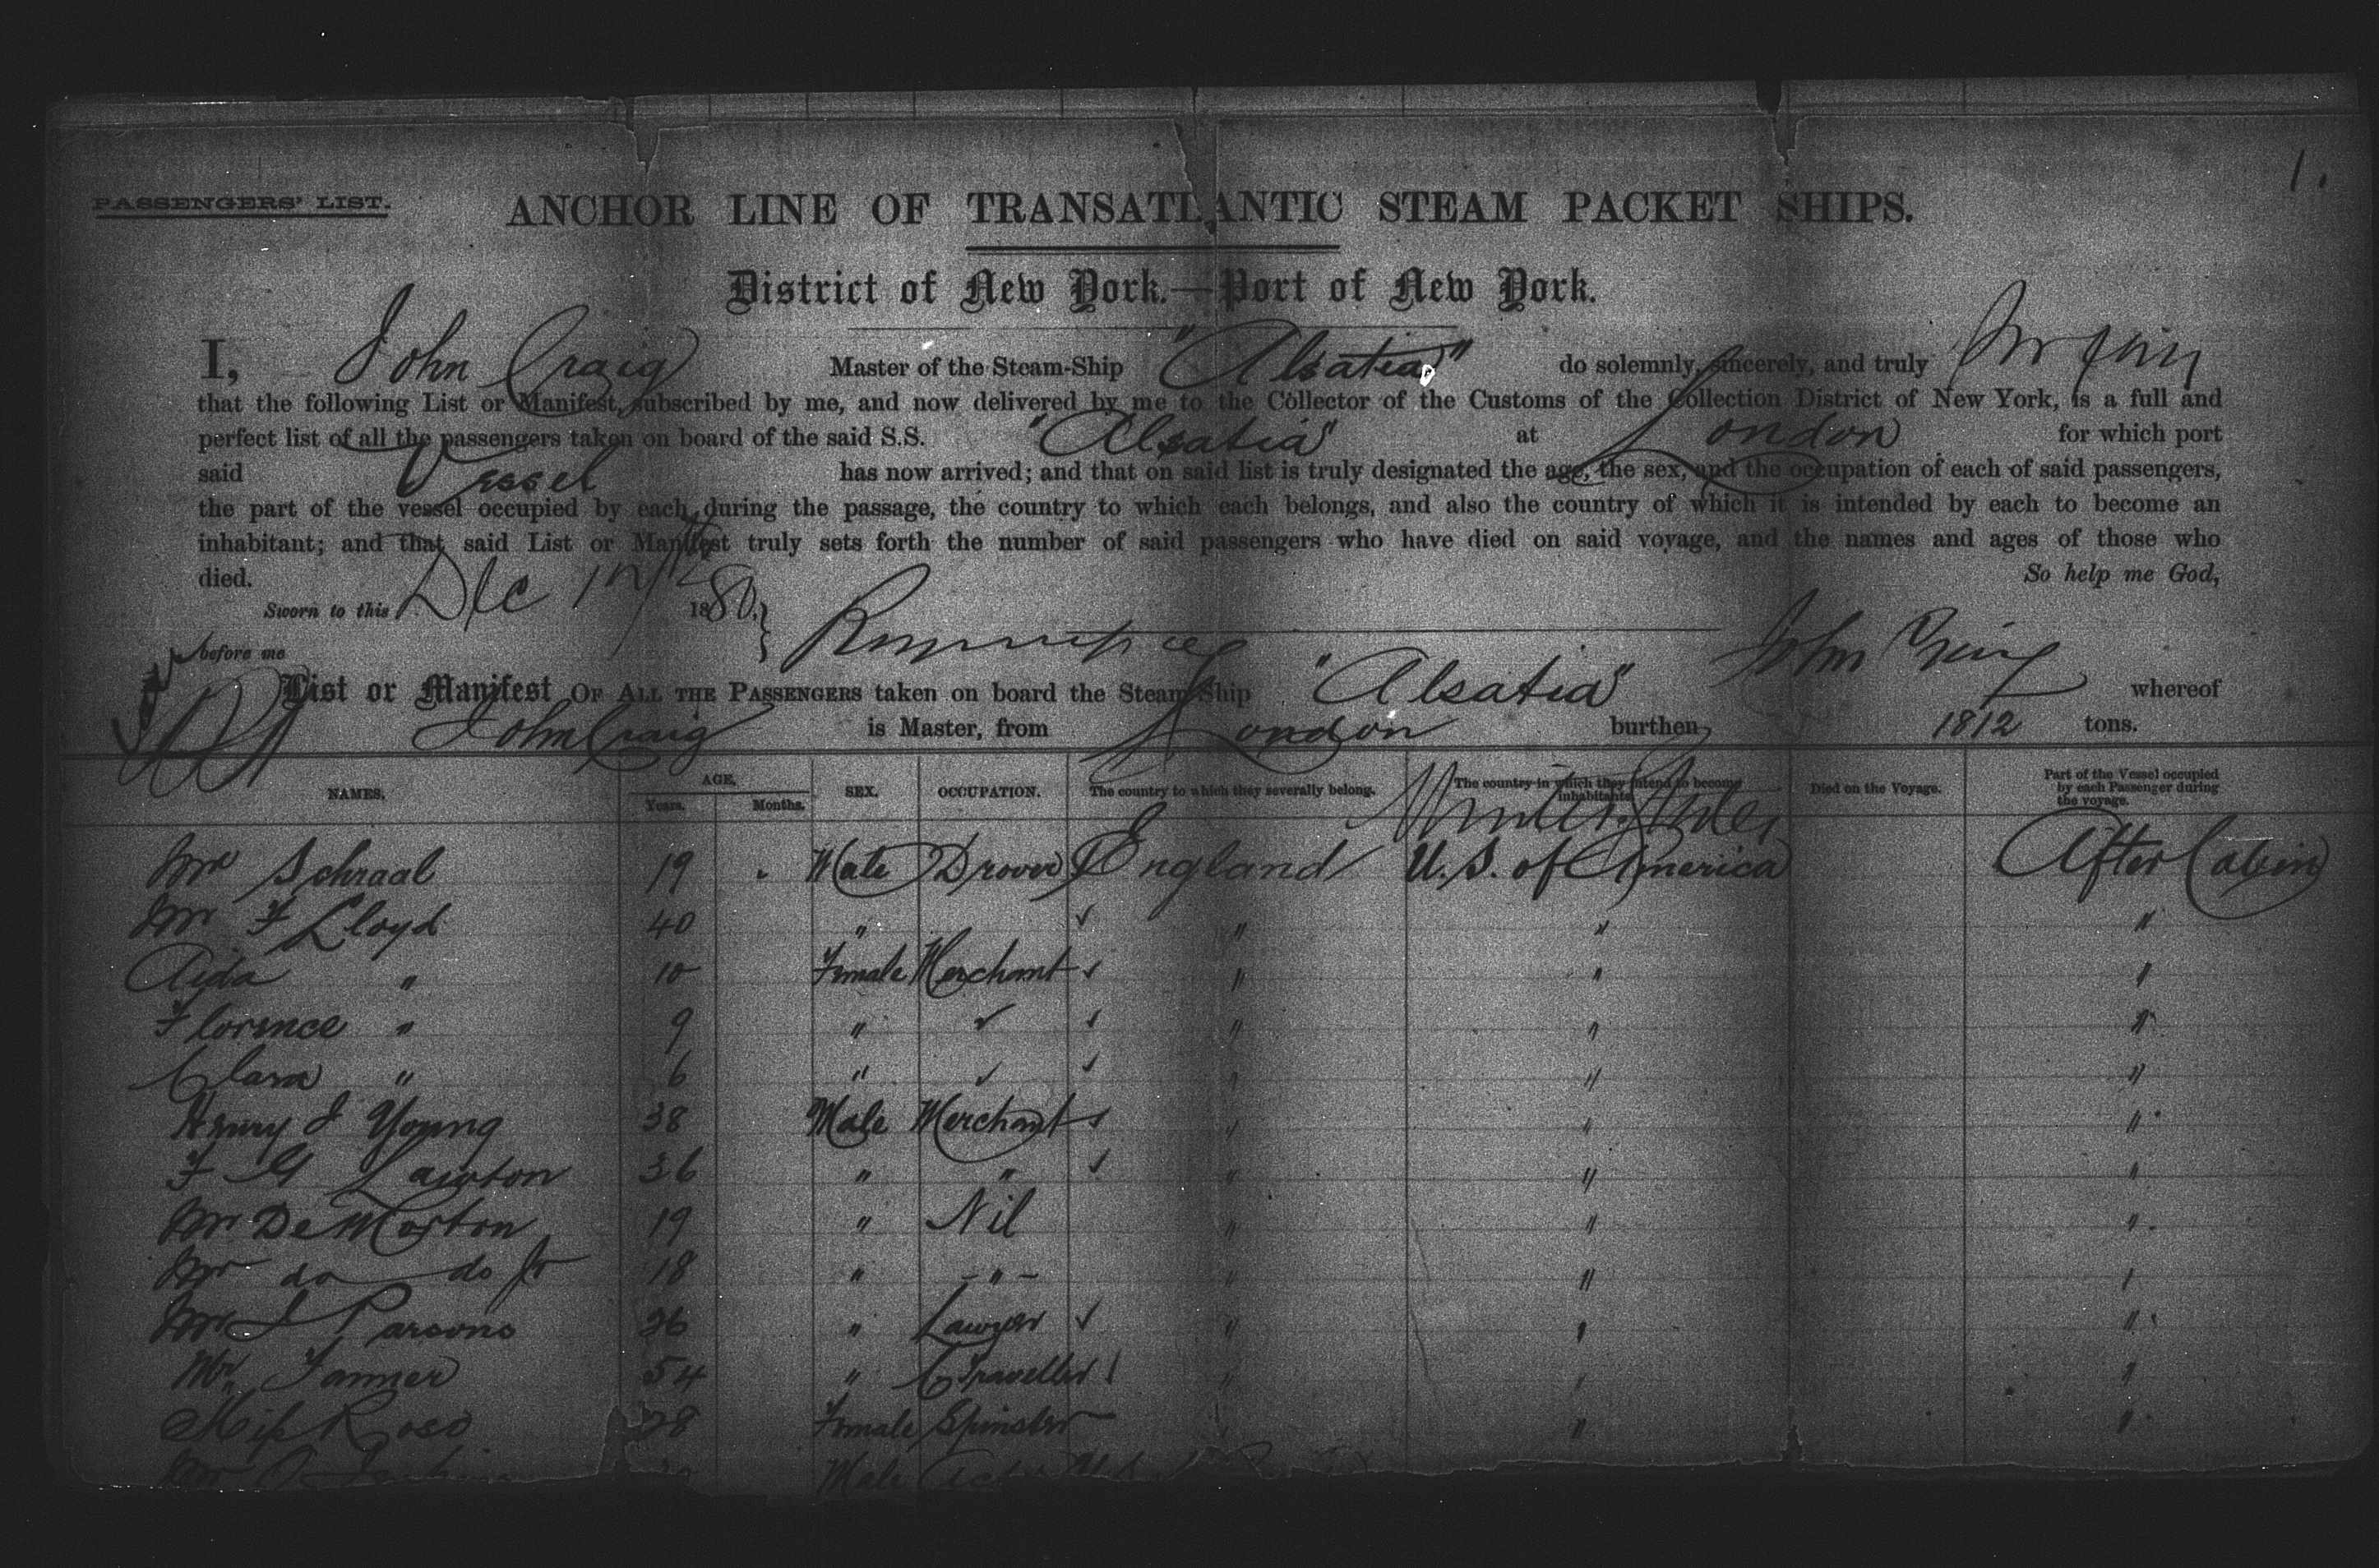 1.
PASSENGERS' LIST.
ANCHOR LINE OF TRANSATLANTIC STEAM PACKET SHIPS.
District of New York.—Port of New York.
I, John Craig Master of the Steam-Ship "Alsatia" do solemnly, sincerely, and truly
that the following List or Manifest, subscribed by me, and now delivered by me to the Collector of the Customs of the Collection District of New York, is a full and
perfect list of all the passengers taken on board of the said S.S. "Alsatia" at London for which port
said Vessel has now arrived; and that on said list is truly designated the age, the sex, and the occupation of each of said passengers,
the part of the vessel occupied by each during the passage, the country to which each belongs, and also the country of which it is intended by each to become an
inhabitant; and that said List or Manifest truly sets forth the number of said passengers who have died on said voyage, and the names and ages of those who
died. So help me God,
Sworn to this Dec 1880.
before me John Craig
List or Manifest OF ALL THE PASSENGERS taken on board the Steam Ship "Alsatia" whereof
John Craig is Master, from London burthen, 1812 tons.
NAMES. AGE. Years. Months. SEX. OCCUPATION. The country to which they severally belong. The country in which they intend to become inhabitants. Died on the Voyage. Part of the Vessel occupied by each Passenger during the voyage.
Mr Schraal 19 Male Drover England U.S. of America After Cabin
Mr F Lloyd 40 " " " "
Aida " 10 Female Merchant " " "
Florence " 9 " " " "
Clara " 6 " " " "
Henry J Young 38 Male Merchant " " "
F G Lawton 36 " " " " "
Mr De Morton 19 " Nil " " "
Mr do do Jr 18 " - " - " " "
Mr J Parsons 26 " Lawyer " " "
Mr Tanner 54 " C Traveller " " "
Miss Rose 28 Female Spinster " "
Mr Male